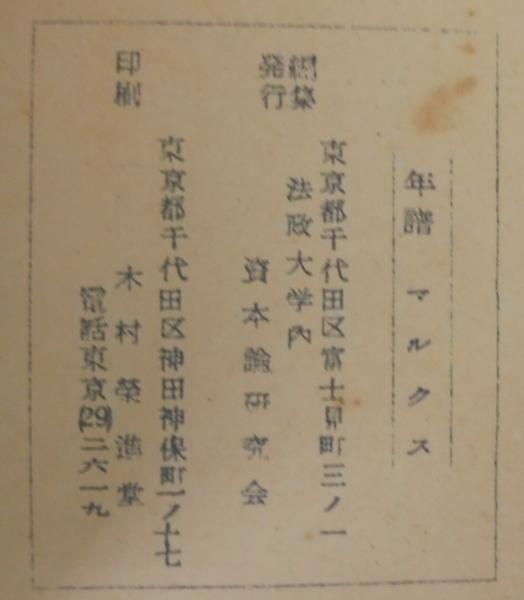 年譜 マルクス
編集
発行
東京都千代田区富士見町三ノ一
法政大学内
資本論研究会
印刷
東京都千代田区神田神保町一ノ十七
木村榮進堂
電話東京(29)二六一九